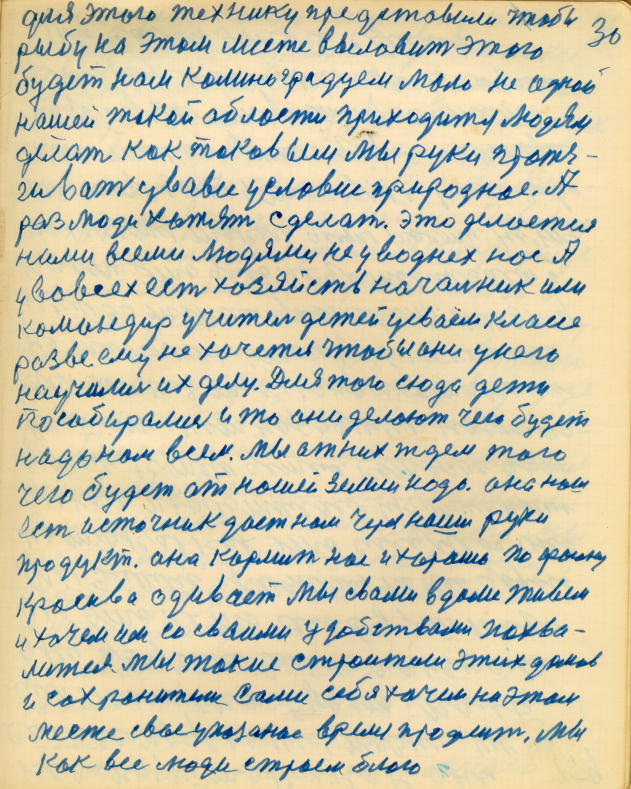 для этого технику предстовили чтобы
30
рыбу на этом месте выловит этого
будет нам Калиноградцем мало не одной
нашей токой области приходится людям
делат как таковыем мы руки протя-
гиват увавсе условие природное. А
раз люди хотят сделат. это делоется
нами всеми людями не уводнех нос А
увовсех ест хозяйств начальник или
командир учител детей уваем класе
разве ему не хочется чтобы они унего
научились их делу. Для того сюда дети
пособирались и то они делоют чего будет
надо нам всем. мы атних ждем того
чего будет от нашей Земли надо. она нам
ест источник дает нам через наши руки
продукт. она кормит нас и хорошо по
красива одивает мы свами в доме живем
и хочем им со сваими удобствами похва-
лится. мы такие строители этих домов
и сохронители Сами себя хочем на этом
месте свое указаное время прожит. мы
как все люди строем благо